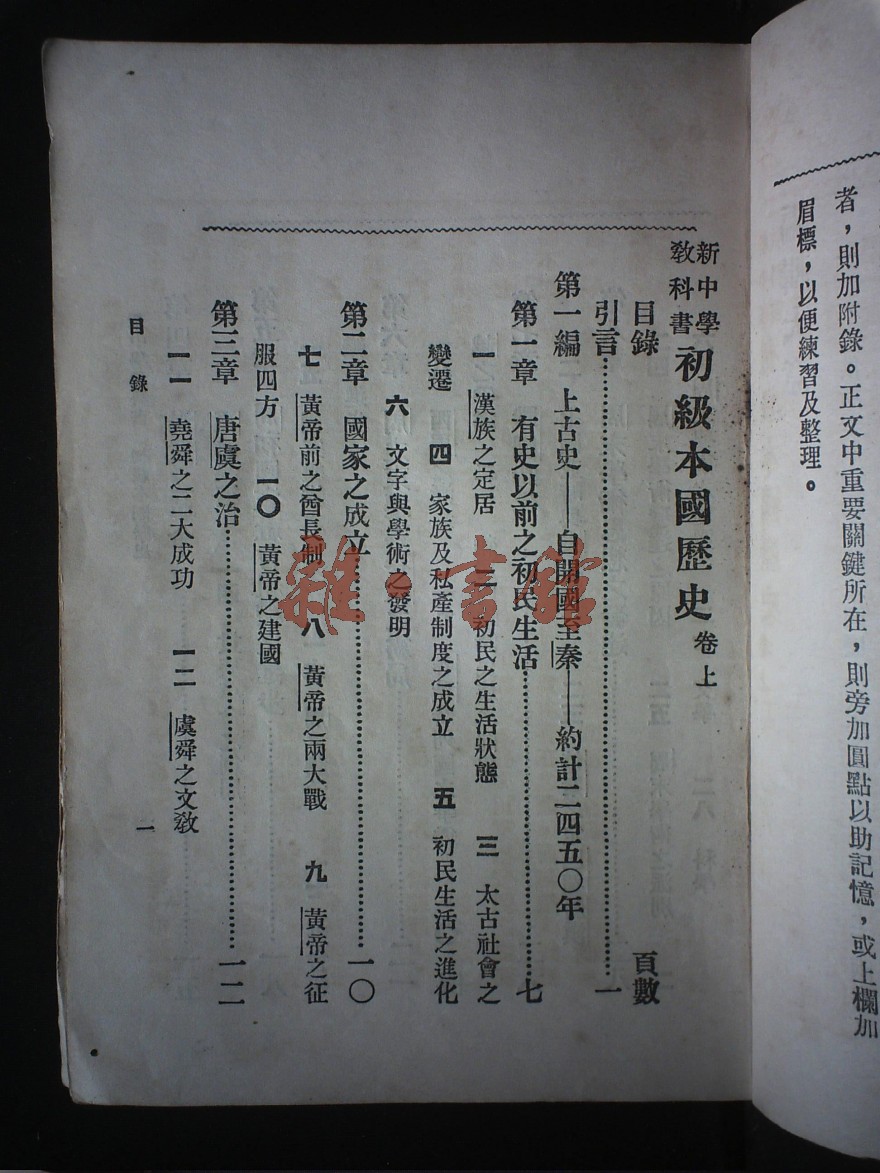 者，則加附錄。正文中重要關鍵所在，則旁加圓點以助記憶，或上欄加
眉標，以便練習及整理。
新中學教科書 初級本國歷史 卷上
目錄 頁數
引言…………一
第一編 上古史——自開國至秦——約計二四五〇年
第一章 有史以前之初民生活…………七
一 漢族之定居 二 初民之生活狀態 三 太古社會之
變遷 四 家族及私產制度之成立 五 初民生活之進化
六 文字與學術之發明
第二章 國家之成立…………一〇
七 黃帝前之酋長制 八 黃帝之兩大戰 九 黃帝之征
服四方 一〇 黃帝之建國
第三章 唐虞之治…………一二
一一 堯舜之二大成功 一二 虞舜之文教
目錄 一
雜·書館